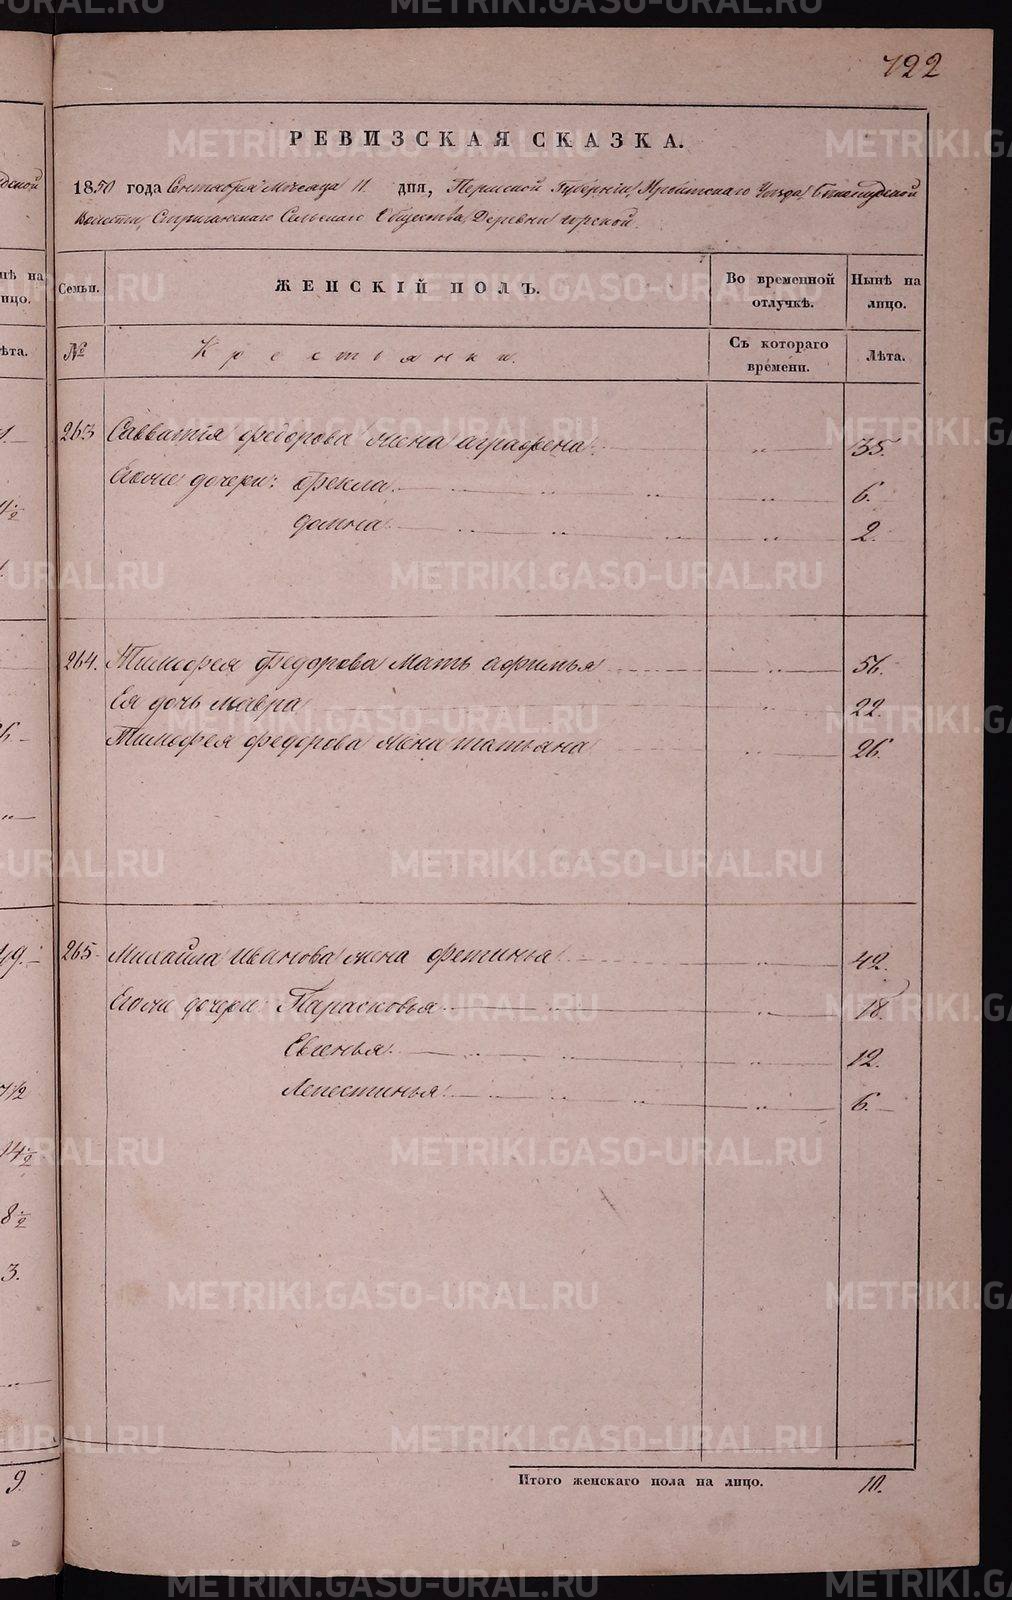 722
РЕВИЗСКАЯ СКАЗКА.
1850 года Сентября месяца 11 дня, Пермской Губернiи, Ирбитскаго Уезда,
Волости, Стриганскаго Сельскаго Общества, Деревни горской.
Семьи. ЖЕНСКІЙ ПОЛЪ. Во временной отлучкѣ. Нынѣ на лицо.
№ Крестьянки. Съ котораго времени. Лѣта.
263 Савватiя федорова жена аграфена. " 35.
Егоже дочери: фекла. " 6.
домна. " 2.
264. Тимофея федорова мать афимья " 56.
Ея дочь мавра " 22.
Тимофея федорова жена татьяна " 26.
265 Михайла иванова жена фетинья " 42.
Егоже дочери: Парасковья " 18.
Евгенья. " 12.
Лепестинья " 6.
Итого женскаго пола на лицо. 10.
METRIKI.GASO-URAL.RU